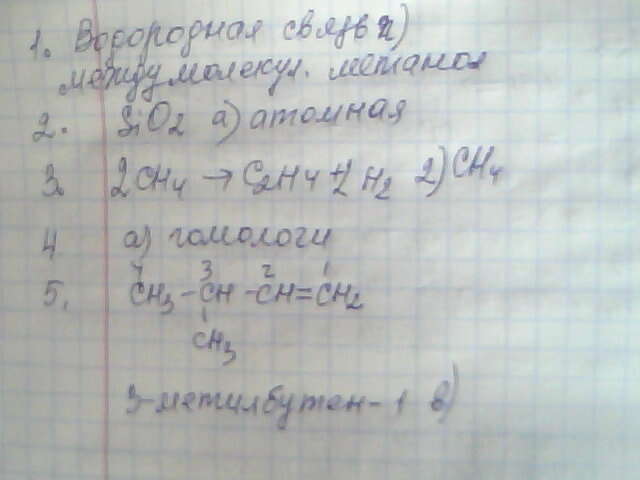 1. Водородная связь г)
между молекул. метанол
2. SiO2 а) атомная
3. 2CH4 → C2H4 + 2H2 г) CH4
4 а) гомологи
4 3 2 1
5. CH3 - CH - CH = CH2
CH3
3-метилбутен-1 в)